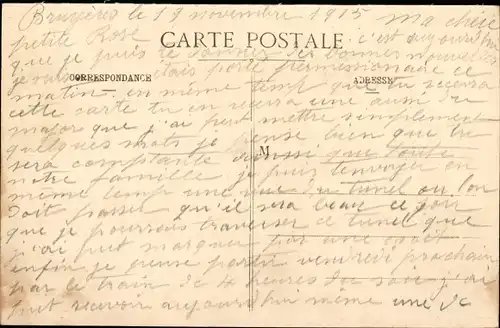 Bruyères le 19 novembre 1915 Ma chère
petite Rose
CARTE POSTALE
c'est aujourd'hui
que je puis te donner des bonnes nouvelles
je suis porté permissionnaire ce
CORRESPONDANCE
ADRESSE
matin en même temp que tu recevra
cette carte tu en recevra une aussi du
major que j'ai peut mettre simplement
quelques mots je pense bien que tu
sera comptante aussi que toute
M
notre famille je puis t'envoyer en
même temp une vue du tunel ou l'on
doit passer qu'il sera beau ce jour
que je pourrais traverser ce tunel que
j'ai put marquer par une croix
enfin je pense partir vendredi prochain
par le train de 4 heures du soir j'ai
put recevoir aujourd'hui même une de